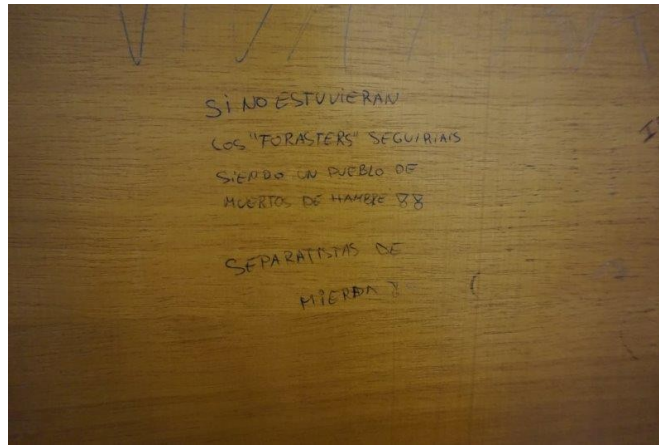 SI NO ESTUVIERAN
LOS "FORASTERS" SEGUIRIAIS
SIENDO UN PUEBLO DE
MUERTOS DE HAMBRE
SEPARATISTAS DE
MIERDA